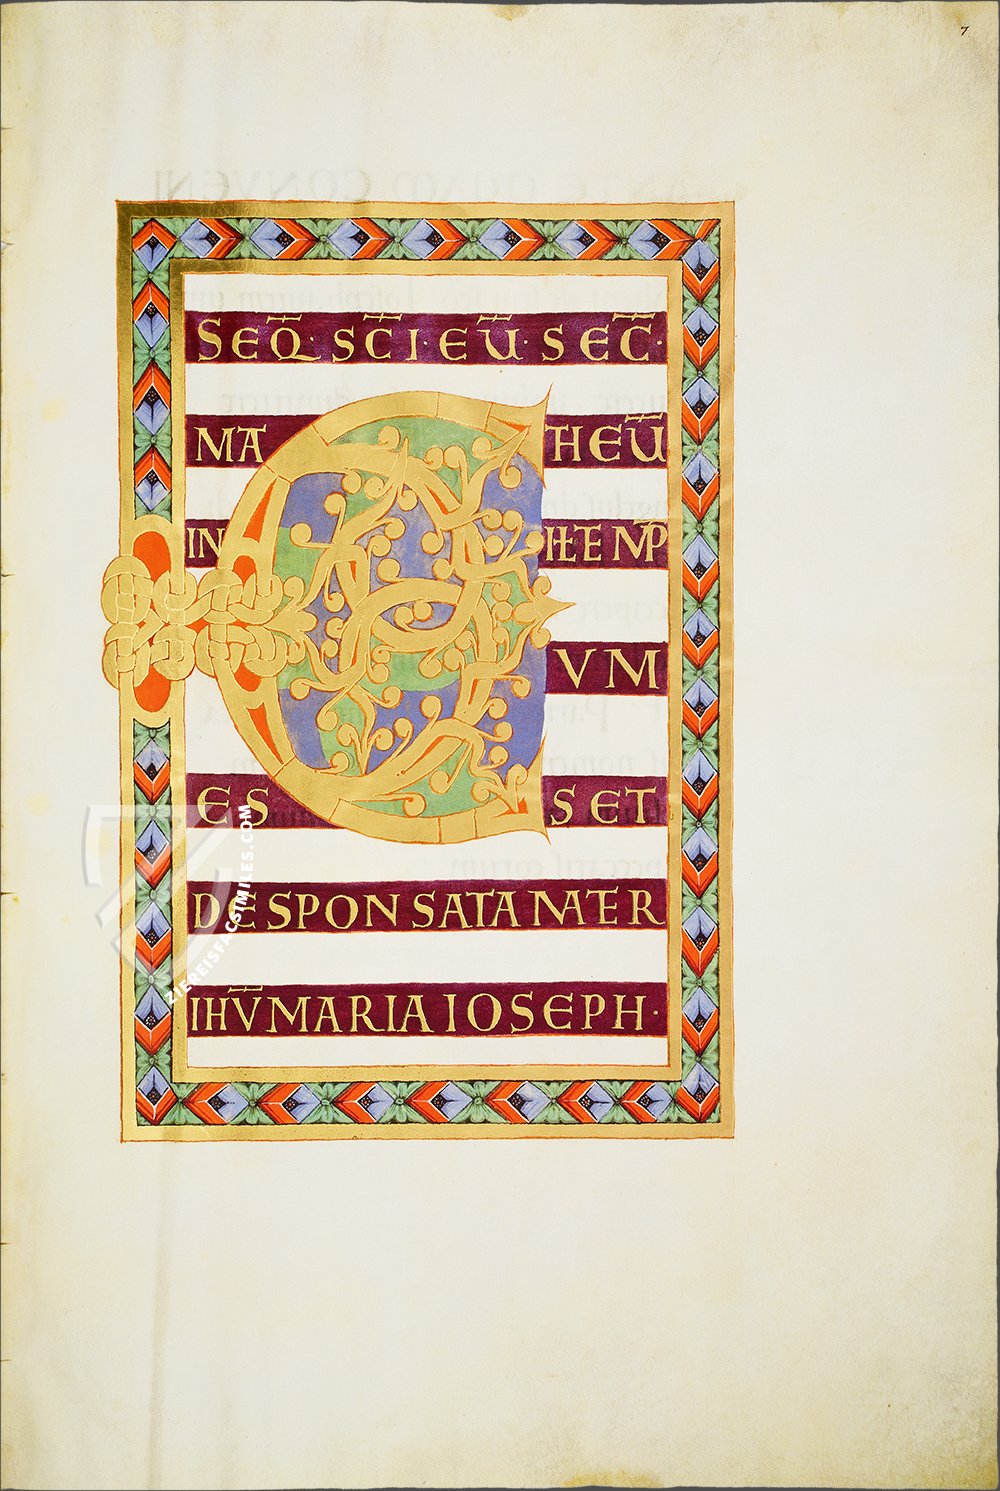 7
SEQ̅· SC̅I· EV̅· SEC̅·
MATHEV̅
IN ILL TEMP̅
C VM
ES SET
DESPONSATA MATER
IHV̅ MARIA IOSEPH·
ZIEREISFACSIMILES.COM